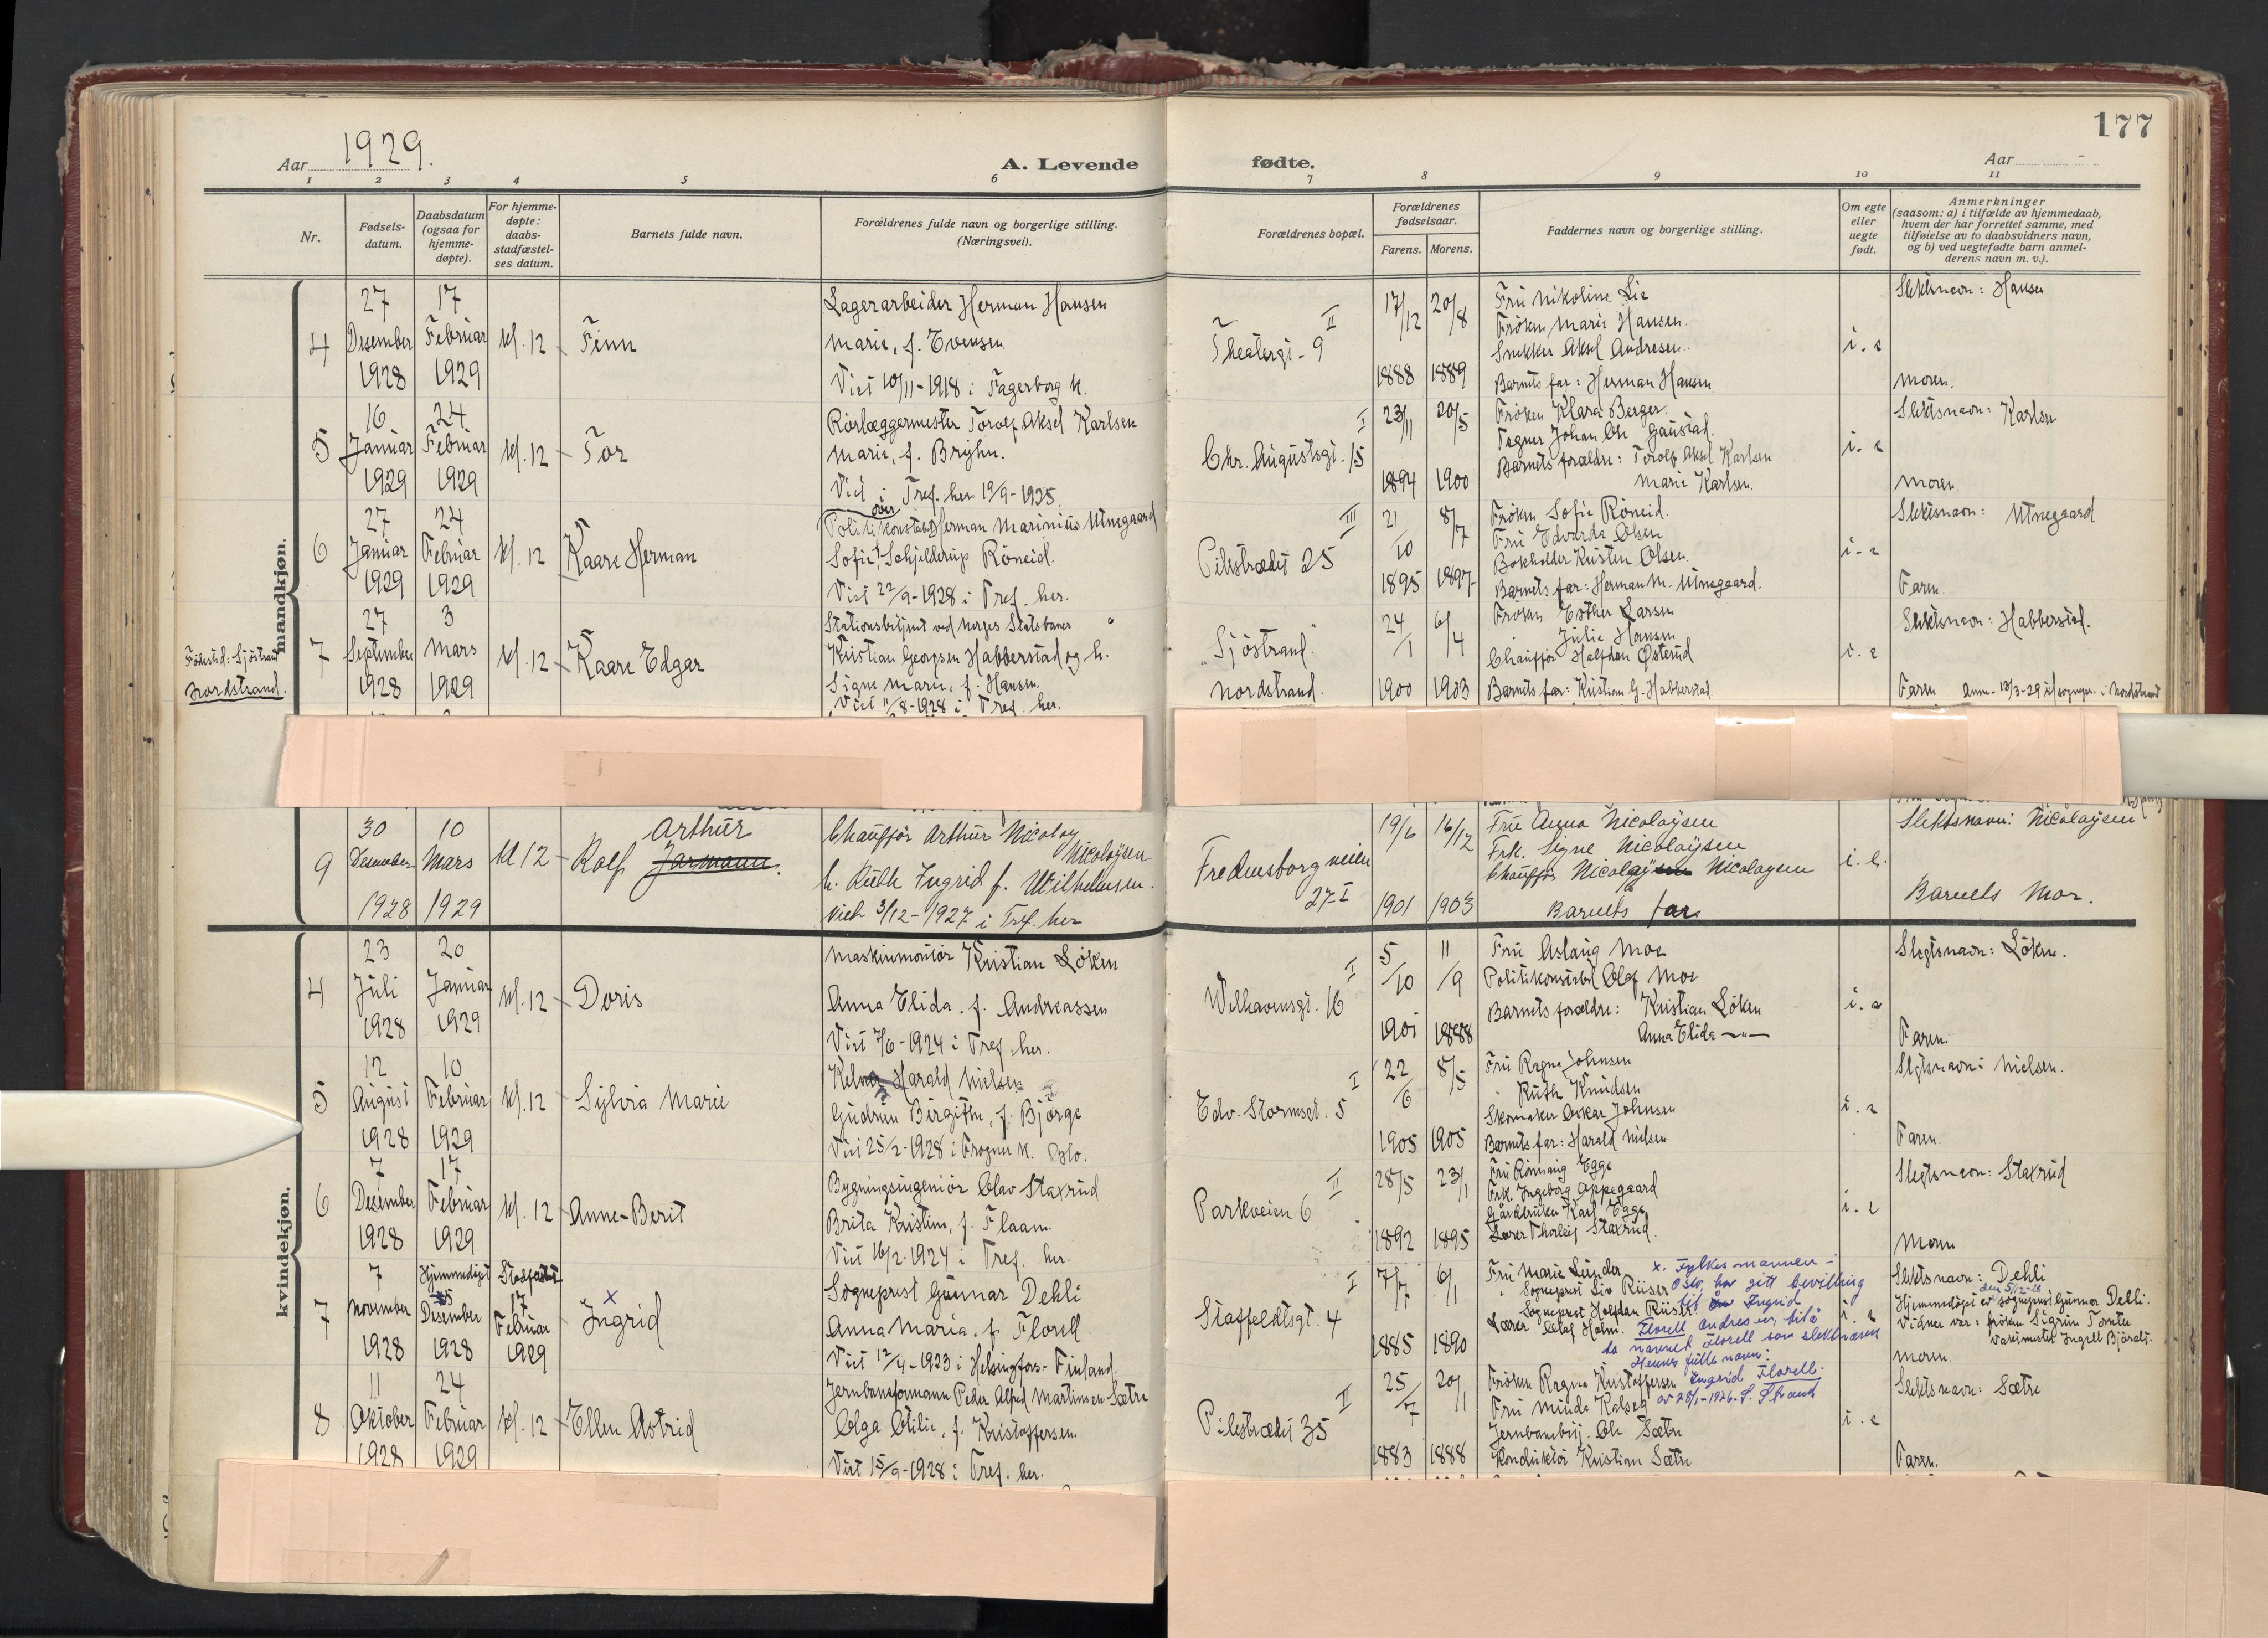 177
Aar 1929.
A. Levende fødte.
Aar
1 2 3 4 5 6 7 8 9 10 11
Nr.
Fødsels-
datum.
Daabsdatum
(ogsaa for
hjemme-
døpte).
For hjemme-
døpte:
daabs-
stadfæstel-
ses datum.
Barnets fulde navn.
Forældrenes fulde navn og borgerlige stilling.
(Næringsvei).
Forældrenes bopæl.
Forældrenes
fødselsaar.
Farens. Morens.
Faddernes navn og borgerlige stilling.
Om egte
eller
uegte
født.
Anmerkninger
(saasom: a) i tilfælde av hjemmedaab,
hvem der har forrettet samme, med
tilføielse av to daabsvidners navn,
og b) ved uegtefødte barn anmel-
derens navn m. v.).
mandkjøn.
4
27
Desember
1928
17
Februar
1929
kl. 12
Finn
Lagerarbeider Herman Hansen
Marie, f. Evensen
Viet 10/11-1918 i Fagerborg k.
II
Theatergt. 9
17/12 20/8
1888 1889
Fru Nikoline Lie
Frøken Marie Hansen.
Snekker Aksel Andresen.
Barnets far: Herman Hansen
i. e
Slektsnavn: Hansen
Moren.
5
16
Januar
1929
24
Februar
1929
kl. 12
Tor
Rørlæggermester Torolf Aksel Karlsen
Marie, f. Bryhn.
Viet i Tref. her 19/9-1925.
I
Chr. Augustsgt. 15
23/11 20/5
1894 1900
Frøken Klara Berger.
Tegner Johan Chr. Gaustad.
Barnets forældre: Torolf Aksel Karlsen
Marie Karlsen.
i. e
Slektsnavn: Karlsen
Moren
6
27
Januar
1929
24
Februar
1929
kl. 12
Kaare Herman
over
Politikonstabel Herman Marinius Utnegaard
Sofie Schjelderup Røneid.
Viet 22/9-1928 i Tref. her.
III
Pilestrædet 25
21/10 8/7
1895 1897
Frøken Sofie Røneid.
Fru Edvarda Olsen
Bokholder Kristen Olsen.
Barnets far: Herman M. Utnegaard.
i. e
Slektsnavn: Utnegaard
Faren.
Fødested: Sjøstrand
Nordstrand.
7
27
September
1928
3
Mars
1929
kl. 12
Kaare Edgar
Stationsbetjent ved Norges Statsbaner
Kristian Georgsen Habberstad og h.
Signe Marie, f. Hansen.
Viet 11/8-1928 i Tref. her.
"Sjøstrand"
Nordstrand.
24/1 6/4
1900 1903
Frøken Esther Larsen
" Julie Hansen
Chauffør Halfdan Østerud
Barnets far: Kristian G. Habberstad
i. e
Slektsnavn: Habberstad.
Faren Anm. 13/3-29 til sogнepr. i Nordstrand
9
30
Desember
1928
10
Mars
1929
kl 12
Arthur
Rolf Jarmann.
Chauffør Arthur Nicolay
Nicolaysen
h. Ruth Ingrid f. Wilhelmsen.
viet 3/12-1927 i Tref. her
Fredensborgveien
27 I
19/6 16/12
1901 1903
Fru Anna Nicolaysen
Frk. Signe Nicolaysen
Chauffør Nicolaysen Nicolaysen
Barnets far
i. e.
Slektsnavn: Nicolaysen
Barnets Mor.
kvindekjøn.
4
23
Juli
1928
20
Januar
1929
kl. 12
Doris
Maskinmontør Kristian Løken
Anna Elida. f. Andreassen
Viet 7/6-1924 i Tref. her.
I
Welhavensgt. 16
5/10 11/9
1901 1888
Fru Aslaug Moe
Politikonstabel Olaf Moe
Barnets forældre: Kristian Løken
Anna Elida —"—
i. e
Slegtsnavn: Løken.
Faren.
5
12
August
1928
10
Februar
1929
kl. 12
Sylvia Marie
Kelner Harald Nielsen
Gudrun Birgithe, f. Bjørge
Viet 25/2-1928 i Frogner k. Oslo.
I
Edv. Stormsgt. 5
22/6 8/5
1905 1905
Fru Ragna Johnsen
" Ruth Knudsen
Skomaker Oskar Johnsen
Barnets far: Harald Nielsen
i. e
Slgtsnavn: Nielsen.
Faren.
6
7
Desember
1928
17
Februar
1929
kl. 12
Anne-Berit
Bygningsingeniør Olav Staxrud
Brita Kristine, f. Flaam.
Viet 16/2-1924 i Tref. her.
II
Parkveien 6
28/5 23/1
1892 1895
Fru Rønnaug Egge
Frk. Ingeborg Oppegaard
Gårdbruker Karl Egge
Lærer Thorleif Staxrud.
i. e
Slegtsnavn: Staxrud
Moren
7
7
November
1928
Hjemmedøpt
5
Desember
1928
Stadfæstet
17
Februar
1929
x
Ingrid
Sogneprest Gunnar Dehli
Anna Maria. f. Florell.
Viet 12/4-1923 i Helsingfors - Finland.
I
Staffeldtsgt. 4
7/7 6/1
1885 1890
Fru Marie Lunder
" Sogneprest Liv Riiser
Sogneprest Halfdan Riiser
Lærer Olaf Holm.
x. Fylkesmannen i
Oslo har gitt bevilling
til at Ingrid
Florell andres
navnet Florell som slektsnavn
Hennes fulle navn:
Ingrid Florell.
i. e
Slektsnavn: Dehli
den 5/12-28
Hjemmedøpt av sogneprest Gunnar Dehli.
Vidner var: frøken Sigrun Tomter
vaktmester Ingvell Bjørali.
Moren.
8
11
Oktober
1928
24
Februar
1929
kl. 12
Ellen Astrid
Jernbaneformann Peder Alfred Martinsen Sætre
Olga Otilie, f. Kristoffersen.
Viet 15/9-1928 i Tref. her.
II
Pilestrædet 35
25/7 20/1
1883 1888
Frøken Ragna Kristoffersen
Fru Minda Kalsen
Jernbanebetj. Ole Sætre
Konduktør Kristian Sætre
i. e
Slektsnavn: Sætre
Faren.